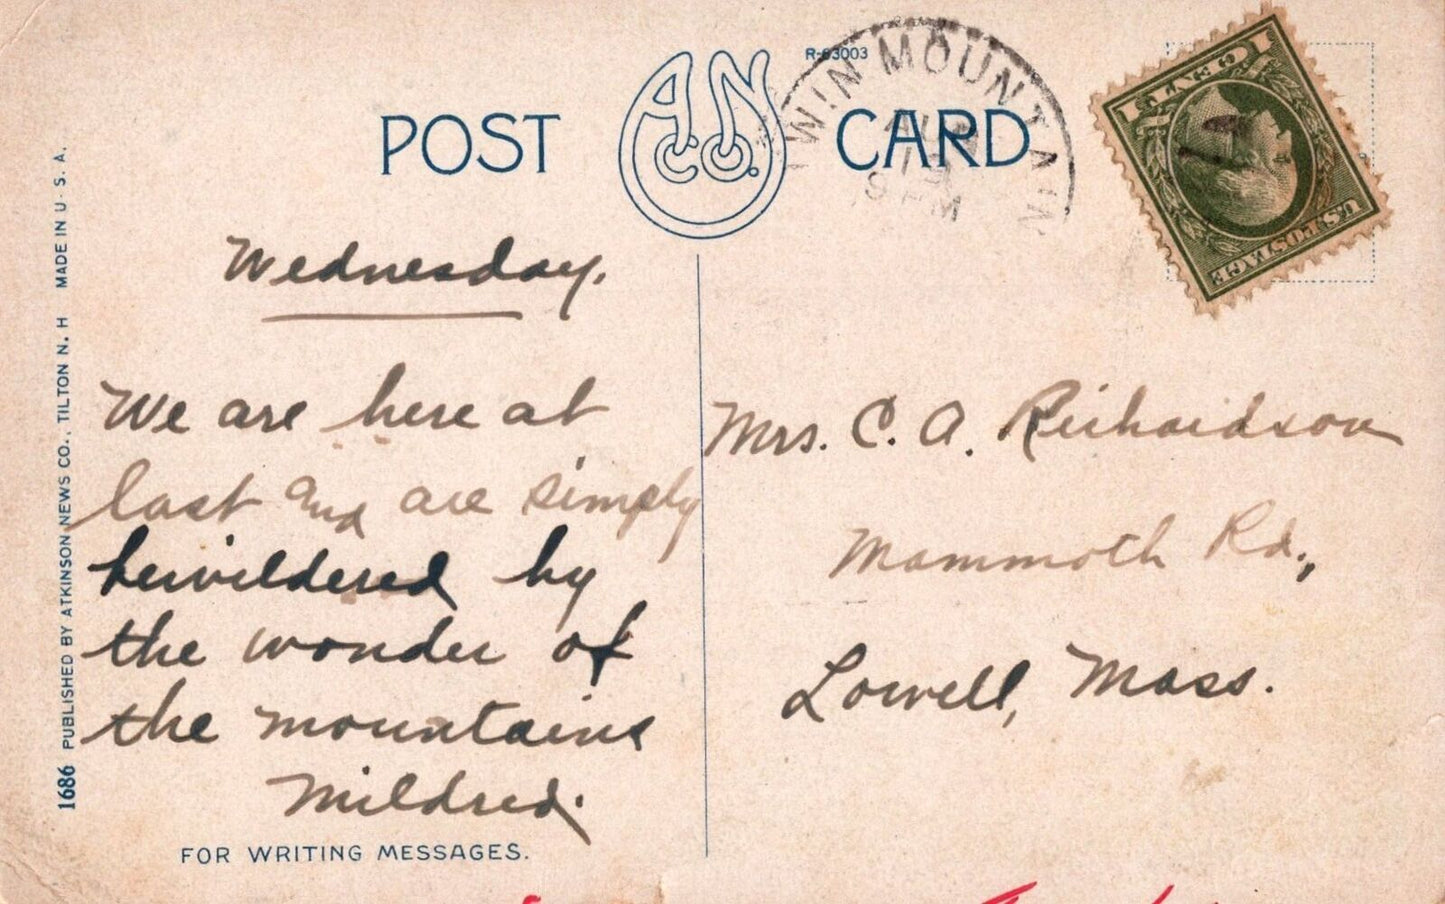 R-63003
POST CARD
A.N.
CO.
TWIN MOUNTAIN
AUG
PM
1 CENT 1
U.S. POSTAGE
Wednesday.
We are here at
last and are simply
bewildered by
the wonder of
the mountains
Mildred.
Mrs. C. A. Richardson
Mammoth Rd.,
Lowell, Mass.
FOR WRITING MESSAGES.
1686 PUBLISHED BY ATKINSON NEWS CO., TILTON N. H MADE IN U. S. A.